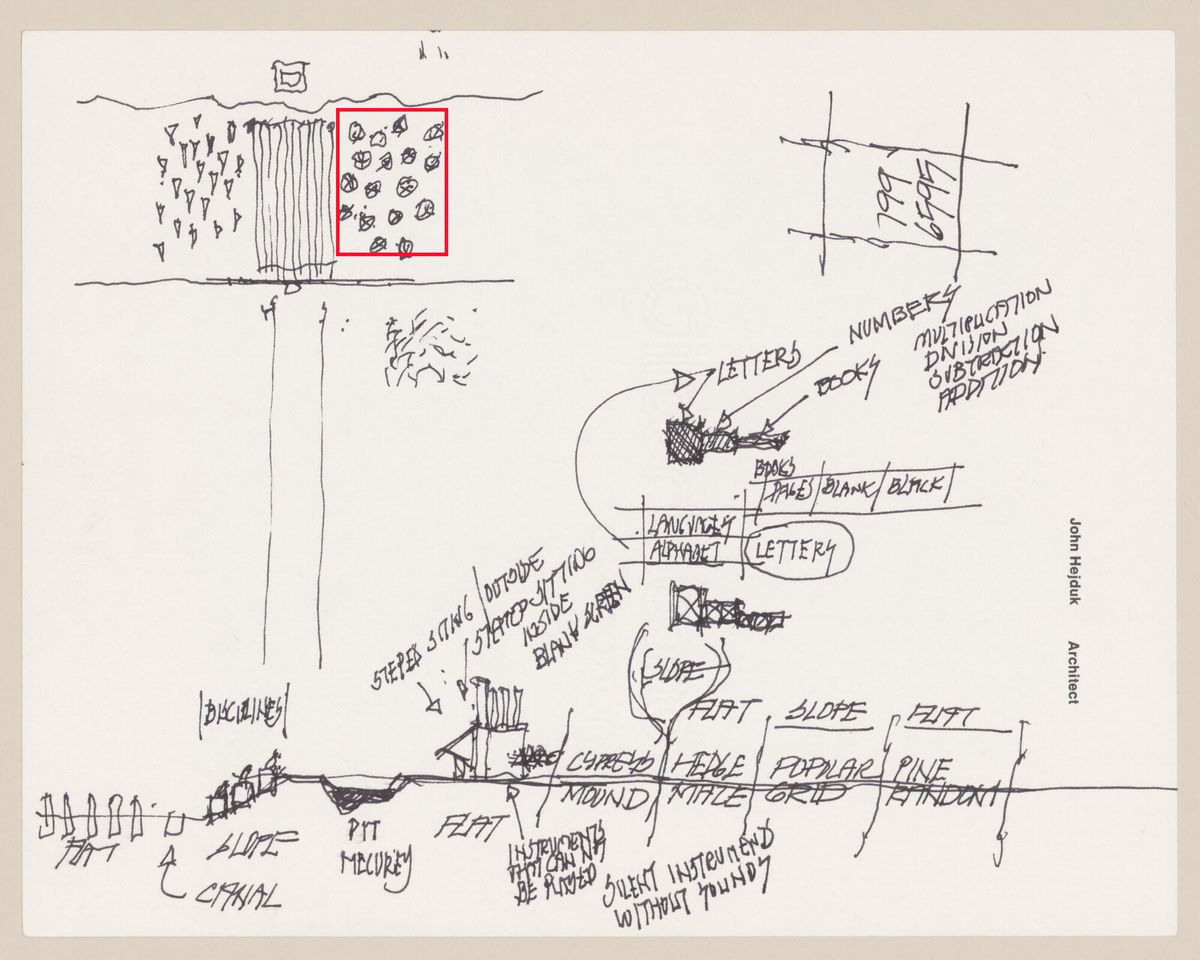 799
6595
NUMBERS
MULTIPLICATION
DIVISION
SUBTRACTION
ADDITION
LETTERS
BOOKS
BOOKS
PAGES BLANK BLACK
LANGUAGES
ALPHABET LETTERS
STEPED SITING OUTSIDE
STEPTED SITTING
INSIDE
BLANK SCREEN
SLOPE
FLAT SLOPE FLAT
DISCIPLINES
CYPRESS HEDGE POPULAR PINE
MOUND MAZE GRID RANDOM
FLAT
SLOPE
PIT
MECUREY
FLAT
CANAL
INSTRUMENTS
THAT CAN NOT
BE PLAYED
SILENT INSTRUMEND
WITHOUT SOUNDS
John Hejduk Architect